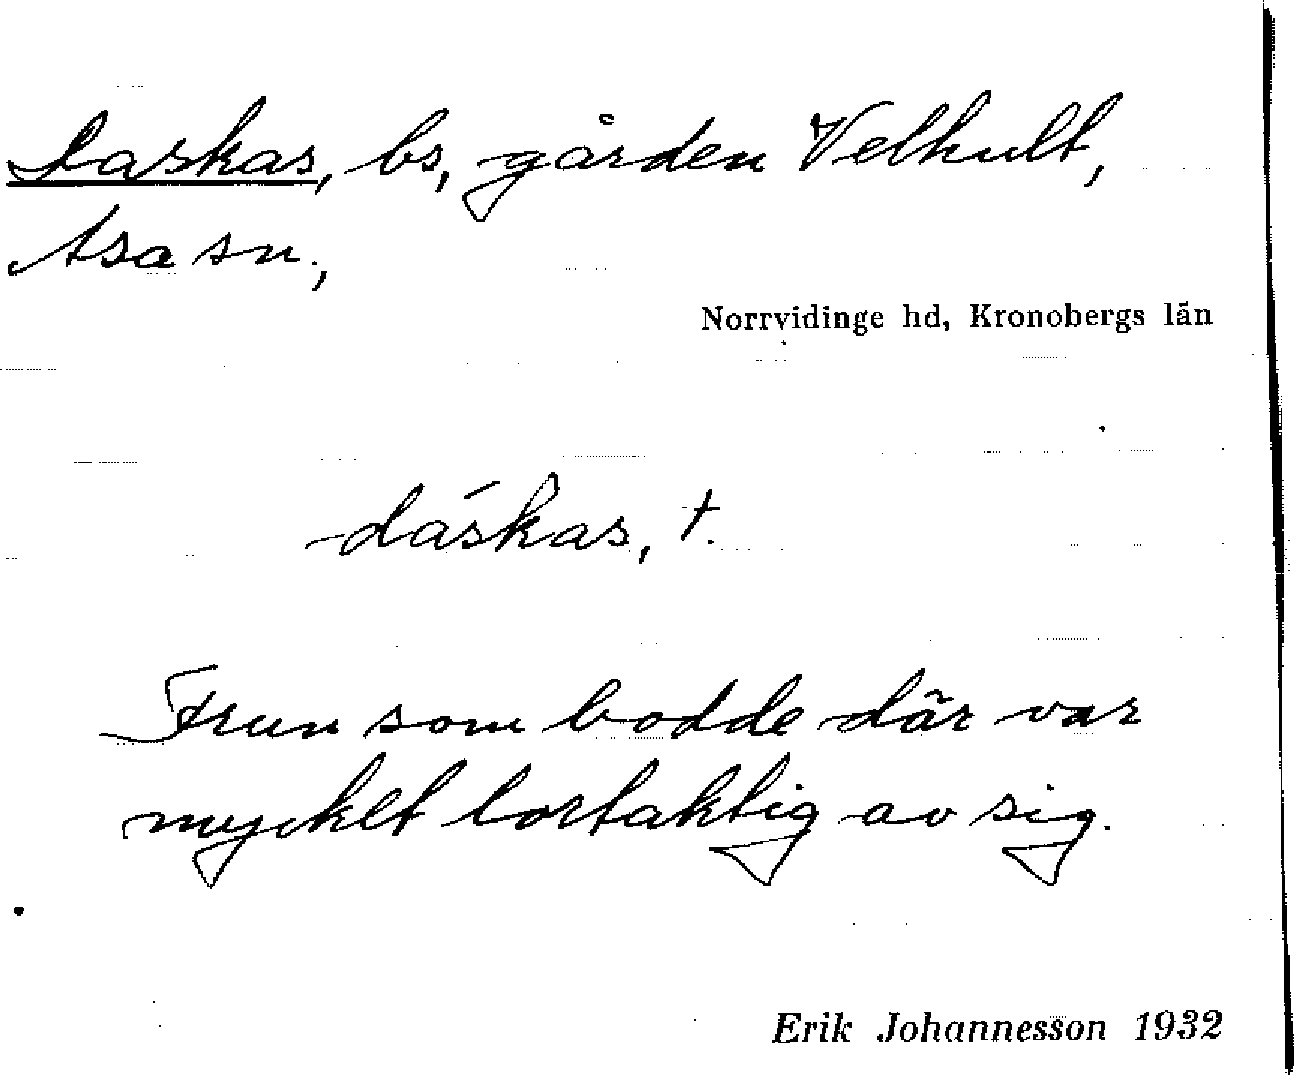 Daskas, bs, gården Velhult,
Asa sn.,
Norrvidinge hd, Kronobergs län
dáskas, t.
Frun som bodde där var
mycket lortaktig av sig.
Erik Johannesson 1932